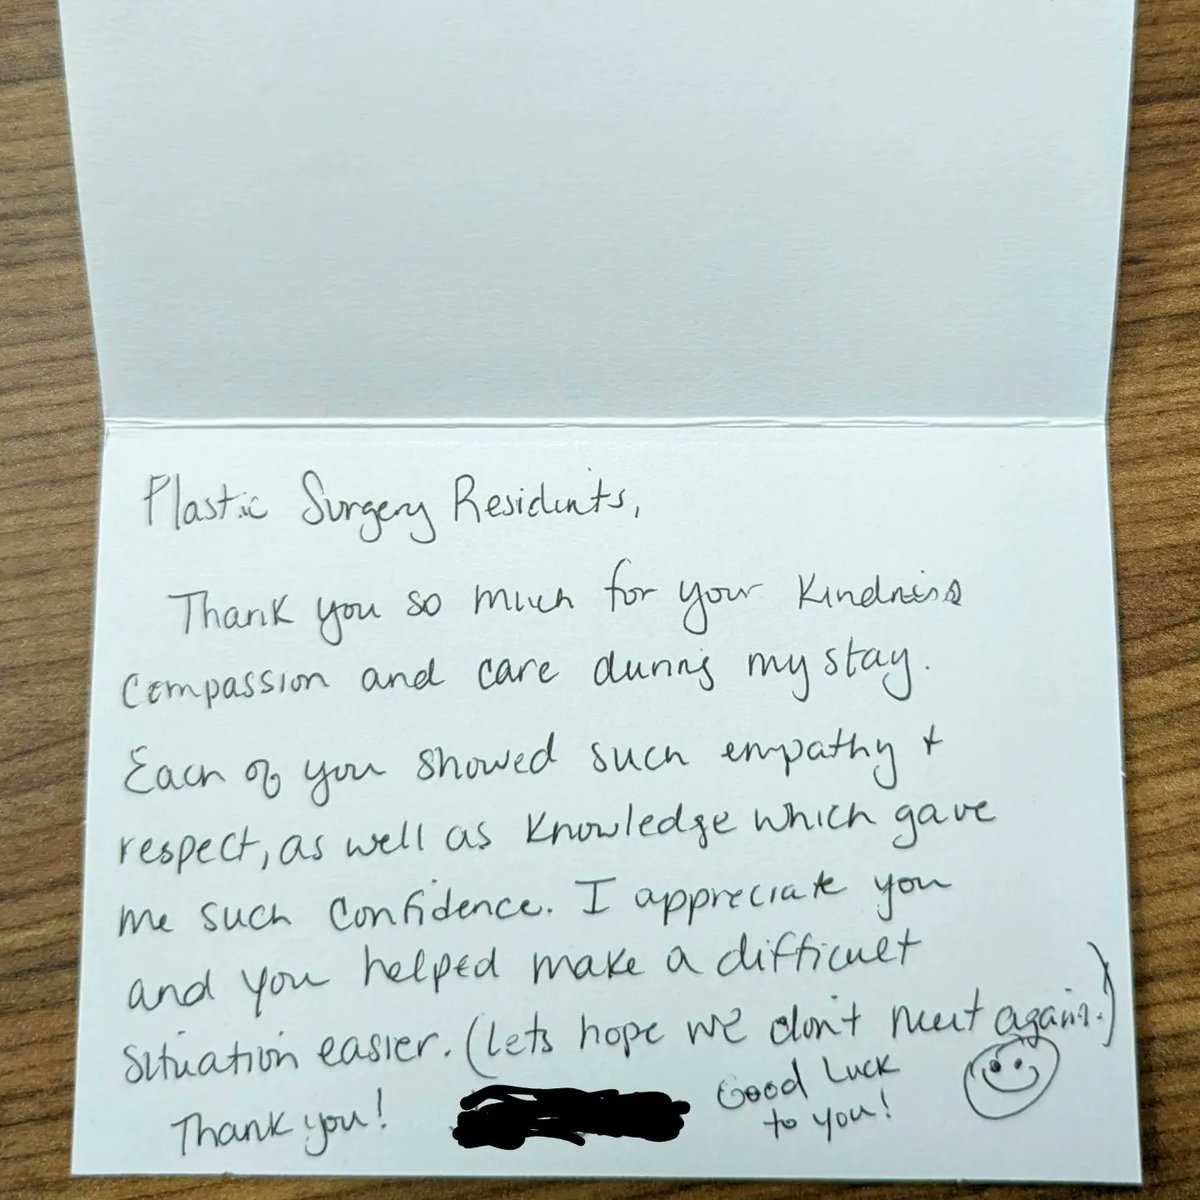 Plastic Surgery Residents,
Thank you so much for your kindness
compassion and care during my stay.
Each of you showed such empathy +
respect, as well as knowledge which gave
me such confidence. I appreciate you
and you helped make a difficult
situation easier. (Lets hope we don't meet again.)
Thank you!
Good Luck
to you!